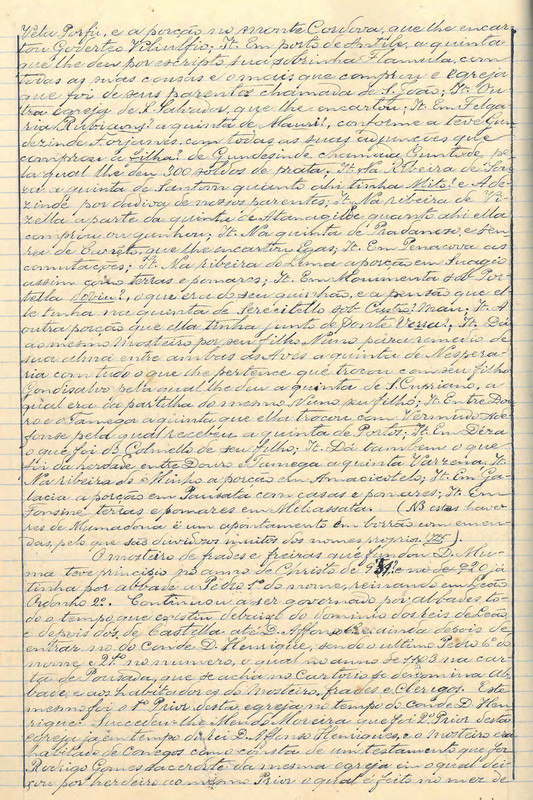 Vela Porfu, e a porção no monte Cordova, que lhe encar-
tou Goderteo Viliulfio; It. Em porto de a quinta
que lhe deu por escripto sua sobrinha Flamula, com
todas as suas cousas e o mais que comprou e egreja
que foi de seus parentes chamada de S. João; It. Ou-
tra egreja de S. Salvador, que lhe encartou; It. Em Felga-
ria Rubians? a quinta de Mauri?, conforme a teve Gun-
derindo Forjames com todas as suas adjuncções que
comprou a filha? de Gundesindo chamada Guntode pe-
la qual lhe deu 300 soldos de prata. It. Na Ribeira de Sou-
za a quinta de Santom quanto ahi tinha Mito? e Ade-
zindo por dadiva de nossos parentes; It. Na ribeira de Vi-
zella a parte da quinta de Atanagildo quanto ahi ella
comprou ou ganhou; It. Na quinta de Pradanoso, e sen-
ra de Carreto, que lhe encartou Egas; It. Em Penacova as
commutações; It. Na ribeira de Lima a porção em
assim como terras e pomares; It. Em Monimenta sob Por-
tella o que era do seu quinhão, e a pensão que el-
le tinha na quinta de Serecitello sob Castro? Mau; It. A
outra porção que ella tinha junto de Ponte It. Dá
ao mesmo Mosteiro por seu filho Nuno para remedio de
sua alma entre ambas as Aves a quinta de Nespera-
ria com tudo o que lhe pertence que trocou com seu filho
Gondisalvo pela qual lhe deu a quinta de S. Cypriano, a
qual era da partilha do mesmo Nuno seu filho; It. Entre Dou-
ro e o Tamega a quinta que ella trocou com Vermudo Ade-
fonso pela qual recebeu a quinta de Portos; It. Em Dira
o que foi de Colmello de seu filho; It. Dá tambem o que
foi da herdade entre Douro e Tamega a quinta Varzena; It.
Na ribeira do Minho a porção em Amaciotelo; It. Em Ga-
lacia a porção em Pausata com casas e pomares; It. Em
terras e pomares em Meliassata. (N'estes have-
res de Mumadona é um apontamento em borrão com emen-
das, pelo que são duvidosos muitos dos nomes proprios).
O mosteiro de frades e freiras que fundou D. Mu-
ma teve principio no anno de Christo de e no de 920 já
tinha por abbade a Pedro 1º do nome, reinando em Leão
Ordonho 2º. Continuou a ser governado por abbades, to-
do o tempo que existiu debaixo do dominio dos reis de Leão,
e depois dos de Castella até D. Affonso 6º e ainda depois de
entrar no do Conde D. Henrique, sendo o ultimo Pedro 6º do
nome e 21º no numero, o qual no anno de 1103 na car-
ta de Pousada, que se acha no Cartorio se denomina Ab-
bade, e aos habitadores do Mosteiro, frades e Clerigos. Este
mesmo foi o 1º Prior desta egreja no tempo do conde D. Hen-
rique. Succedeu-lhe Mendo Moreira que foi 2º Prior desta
egreja já em tempo d'elrei D. Affonso Henriques, e o Mosteiro era
habitado de Conegos como consta de um testamento que fez
Rodrigo Gomes sacerdote da mesma egreja em o qual dei-
xou por herdeiro ao mesmo Prior o qual é feito no mez de